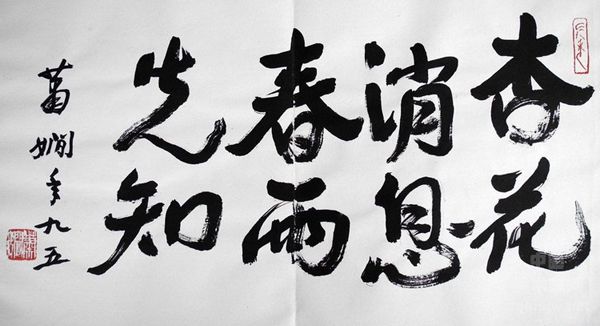 杏花
消息
春雨
先知
蕭嫻年九五